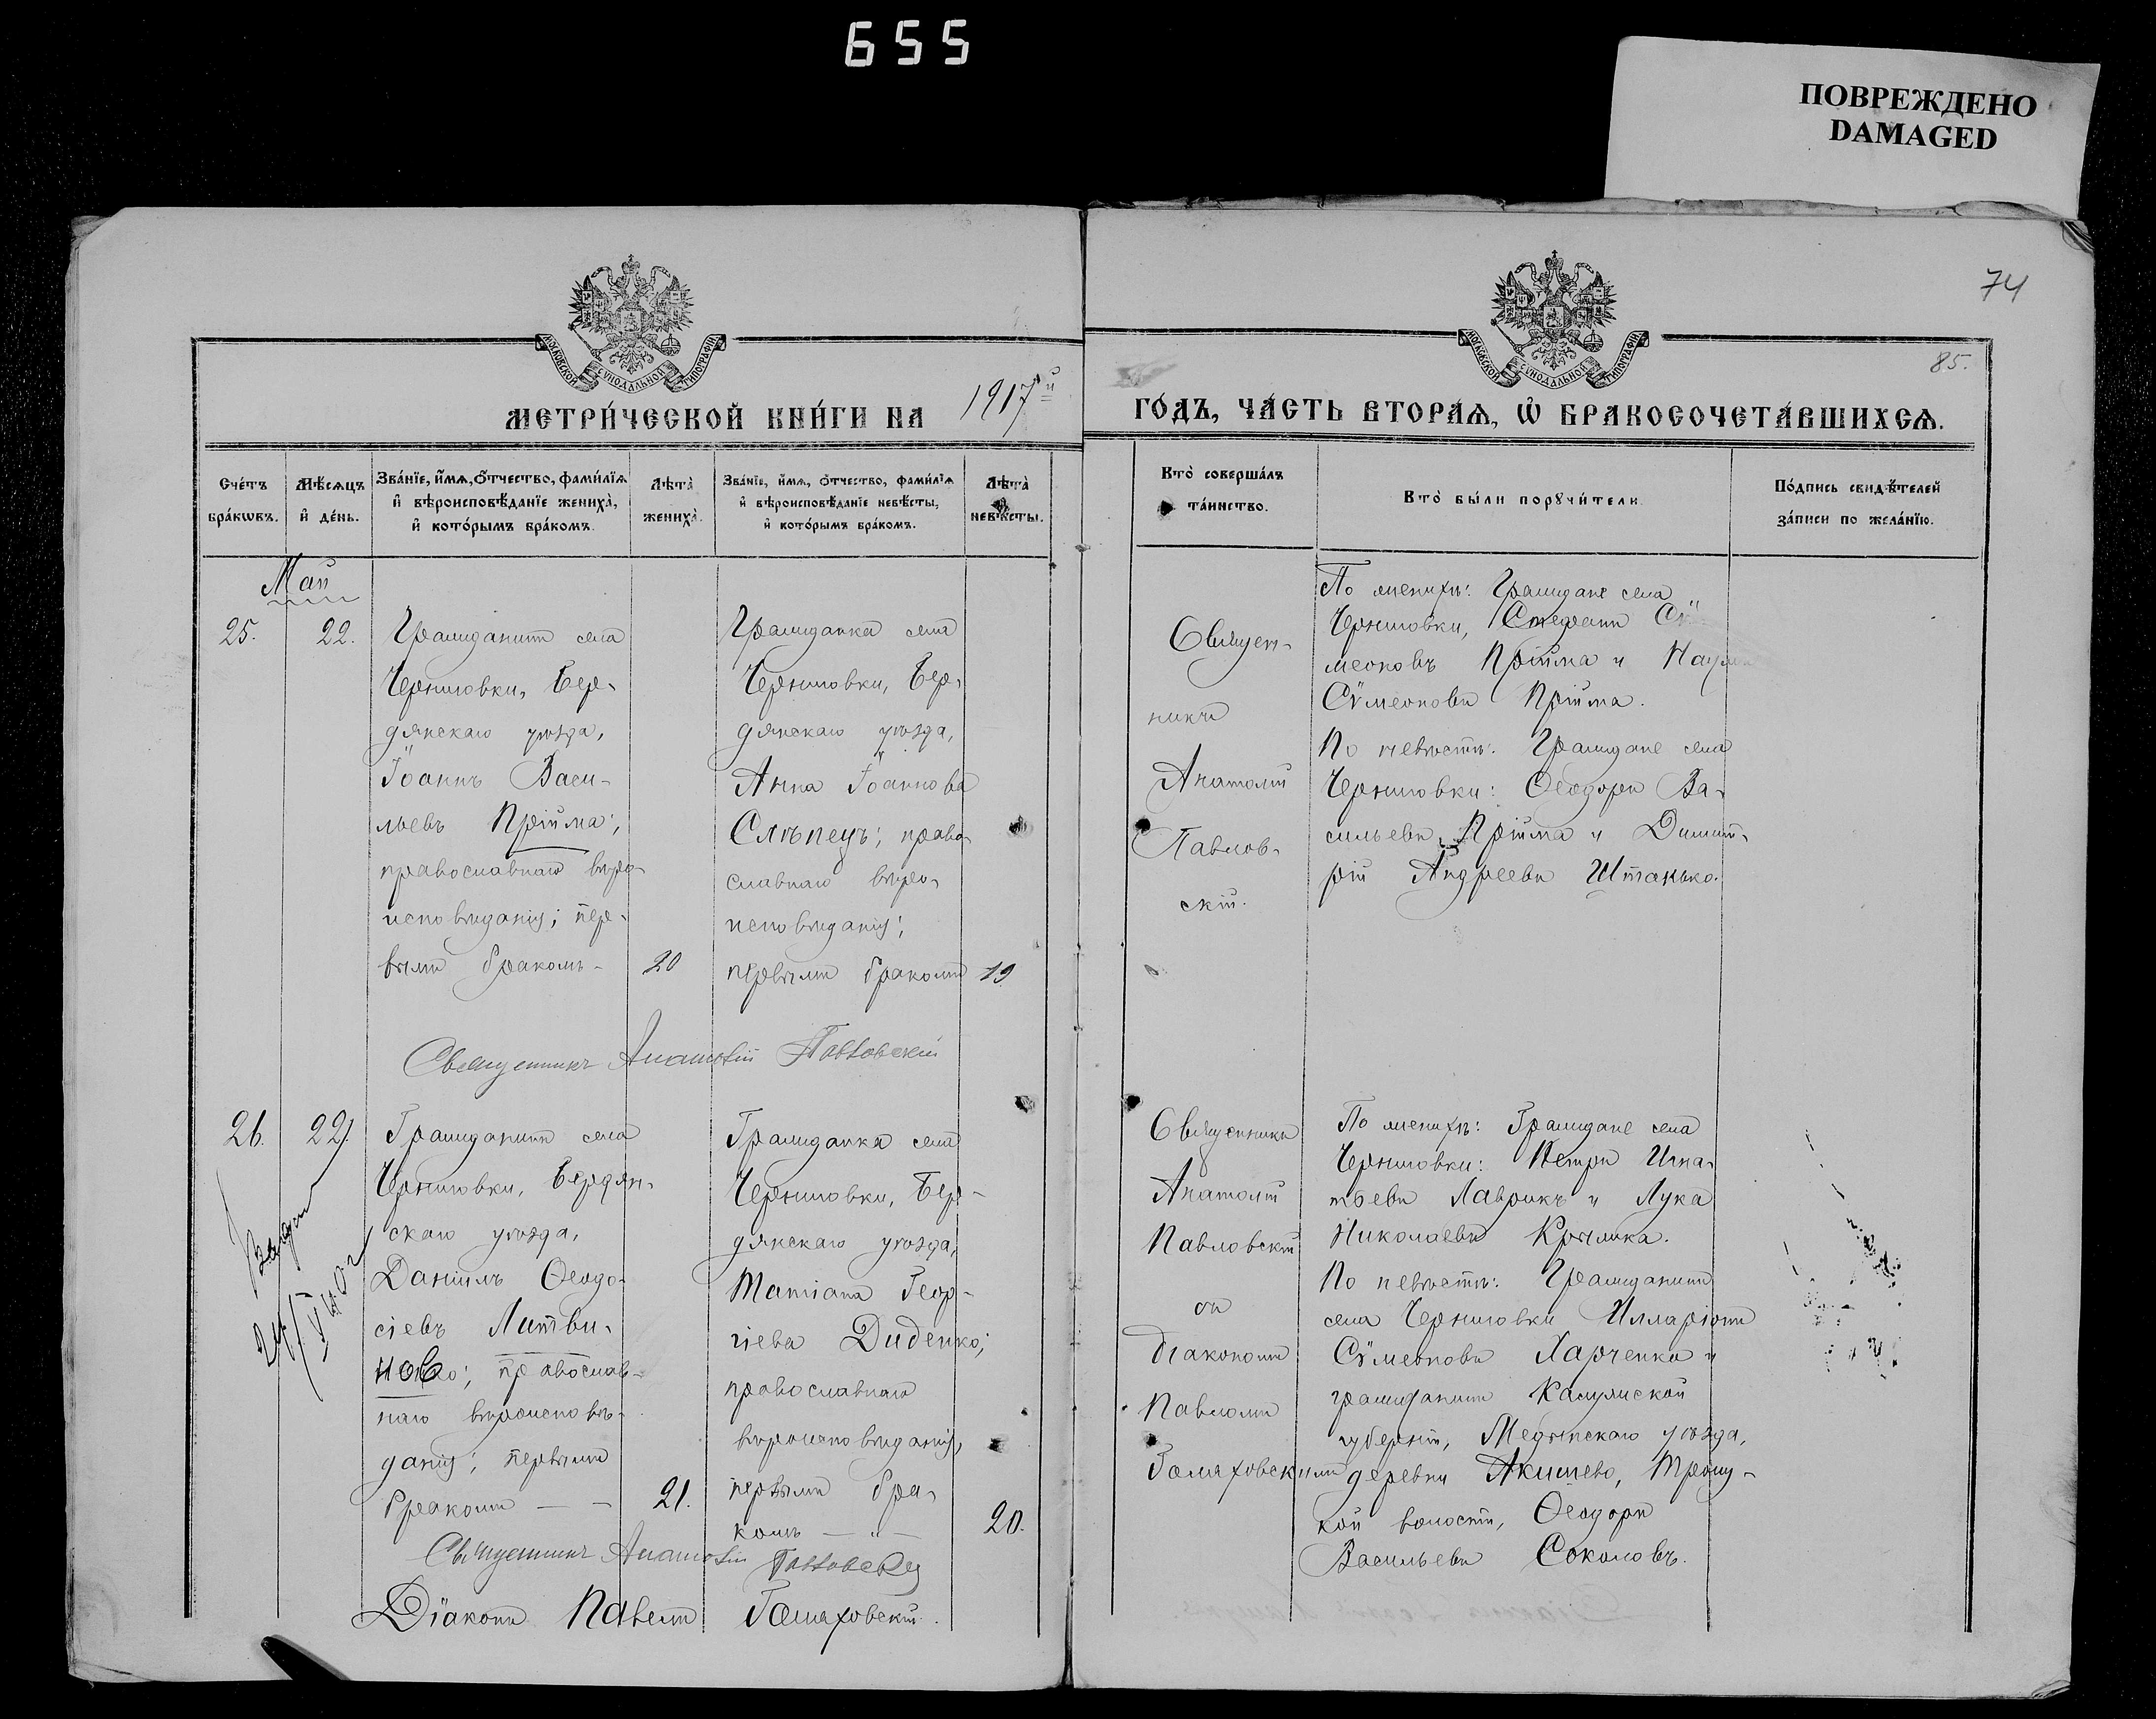 655
ПОВРЕЖДЕНО
DAMAGED
74
85.
МОСКОВСКОЙ СѴНОДАЛЬНОЙ ТИПОГРАФІИ
МОСКОВСКОЙ СѴНОДАЛЬНОЙ ТИПОГРАФІИ
МЕТРИ́ЧЕСКОЙ КНИ́ГИ НА 1917й
ГО́ДЪ, ЧА́СТЬ ВТОРА́Ѧ, Ѡ҆ БРАКОСОЧЕТА́ВШИХСѦ.
Сче́тъ
бра́кѡвъ.
Мѣ́сѧцъ
и҆ де́нь.
Зва́нїе, и҆́мѧ, ѻ҆́тчество, фами́лїѧ
и҆ вѣроисповѣ́данїе жениха̀,
и҆ кото́рымъ бра́комъ.
Лѣ́та̀
жениха̀.
Зва́нїе, и҆́мѧ, ѻ҆́тчество, фами́лїѧ
и҆ вѣроисповѣ́данїе невѣ́сты,
и҆ кото́рымъ бра́комъ.
Лѣ́та̀
невѣ́сты.
Кто̀ соверша́лъ
та́инство.
Кто̀ бы́ли порꙋчи́тели.
По́дпись свидѣ́телей
за́писи по жела́нїю.
Май
25.
22.
Гражданинъ села
Черниговки, Бер-
дянскаго уѣзда,
Іоаннъ Васи-
льевъ Прійма;
православнаго вѣро-
исповѣданія; пер-
вымъ бракомъ -
20
Гражданка села
Черниговки, Бер-
дянскаго уѣзда,
Анна Іоаннова
Слѣпецъ; право-
славнаго вѣро-
исповѣданія;
первымъ бракомъ
19
Священ-
никъ
Анатолій
Павлов-
скій.
По женихѣ: Граждане села
Черниговки, Стефанъ Сѵ-
меоновъ Прійма и Наумъ
Сѵмеоновъ Прійма.
По невѣстѣ: Граждане села
Черниговки: Ѳеодоръ Ва-
сильевъ Прійма и Димит-
рій Андреевъ Штанько.
Священникъ Анатолій Павловскій
26.
22.
Гражданинъ села
Черниговки, Бердян-
скаго уѣзда,
Даніилъ Ѳеодо-
сіевъ Литви-
ново; православ-
наго вѣроисповѣ-
данія; первымъ
бракомъ — -
21.
Гражданка села
Черниговки, Бер-
дянскаго уѣзда,
Татіана Геор-
гіева Диденко;
православнаго
вѣроисповѣданія,
первымъ бра-
комъ — „ —
20.
Священникъ
Анатолій
Павловскій
съ
діакономъ
Павломъ
Гомяховскимъ
По женихѣ: Граждане села
Черниговки: Петръ Игна-
тьевъ Лаврикъ и Лука
Николаевъ
По невѣстѣ: Гражданинъ
села Черниговки Илларіонъ
Сѵмеоновъ Харченко и
гражданинъ Калужской
губерніи, Медынскаго уѣзда,
деревни Акишево, Троиц-
кой волости, Ѳеодоръ
Васильевъ Соколовъ.
Священникъ Анатолій Павловскій
Діаконъ Павелъ Гомяховскій.